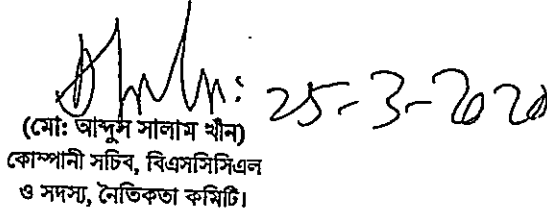 25-3-2020
(মো: আব্দুস সালাম খাঁন)
কোম্পানী সচিব, বিএসসিসিএল
ও সদস্য, নৈতিকতা কমিটি।